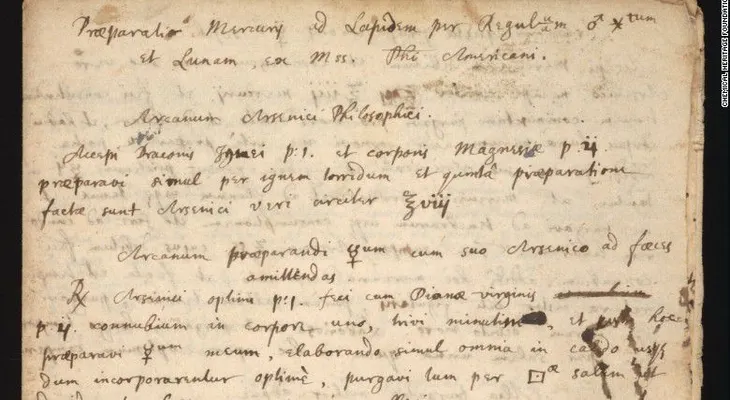 Præparatio Mercurij ad Lapidem per Regulum ♂
et Lunam, ex Mss. Phi Americani.
Arcanum Arsenici Philosophici.
Accepi Draconis Ignei p: 1. et corporis Magnesiæ p: ij
præparavi simul per ignem torridum et quintâ præparatione
factæ sunt Arsenici veri circiter ℥viij
Arcanum præparandi ☿um cum suo Arsenico ad fæces
amittendas
℞ Arsenici optimi p: 1. feci cum Dianæ virginis
p: ij. connubium in corpore uno, trivi minutim, et hoc
præparavi ☿um meum, elaborando simul omnia in
dum incorporarentur optimè, purgavi tum per salem
CHEMICAL HERITAGE FOUNDATION